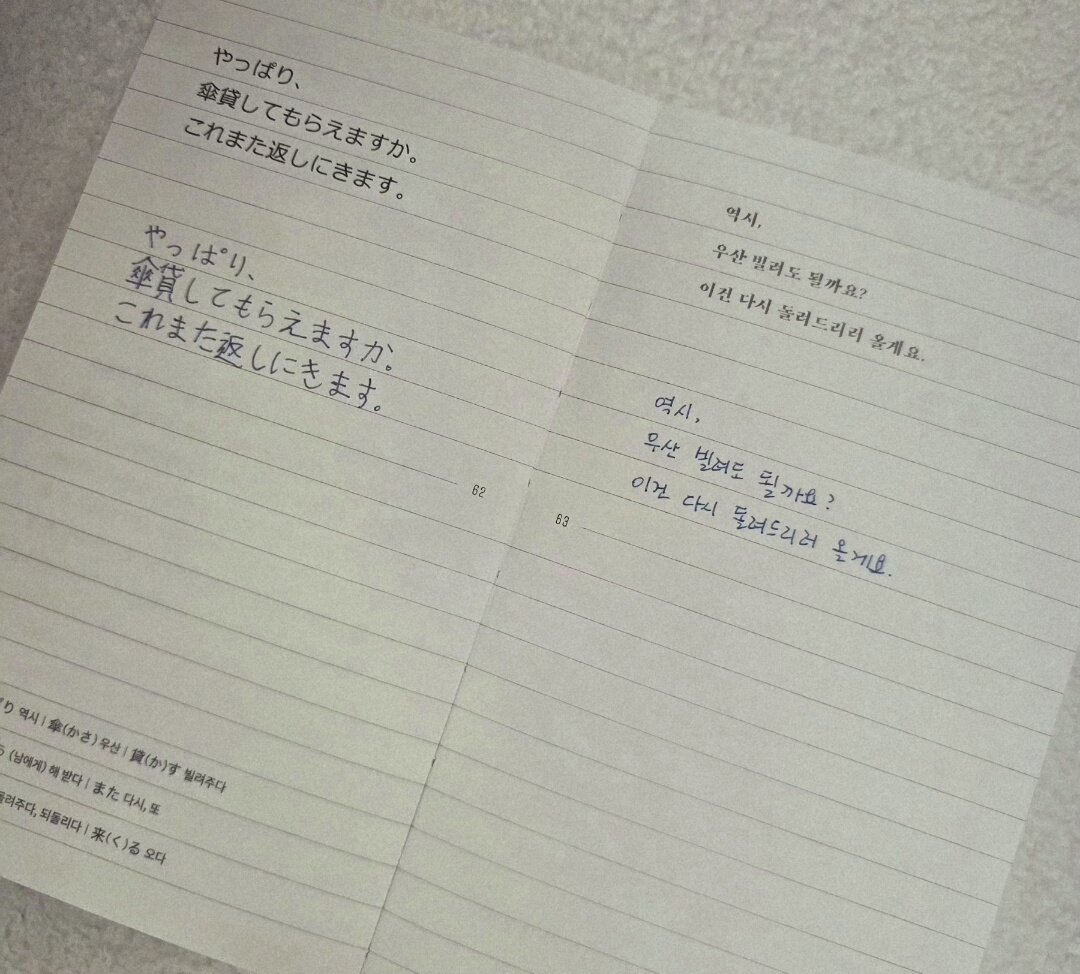 やっぱり、
傘貸してもらえますか。
これまた返しにきます。
やっぱり、
傘貸してもらえますか。
これまた返しにきます。
62
り 역시 | 傘(かさ) 우산 | 貸(か)す 빌려주다
(남에게) 해 받다 | また 다시, 또
돌려주다, 되돌리다 | 来(く)る 오다
역시,
우산 빌려도 될까요?
이건 다시 돌려드리러 올게요.
역시,
우산 빌려도 될까요?
이건 다시 돌려드리러 올게요.
63